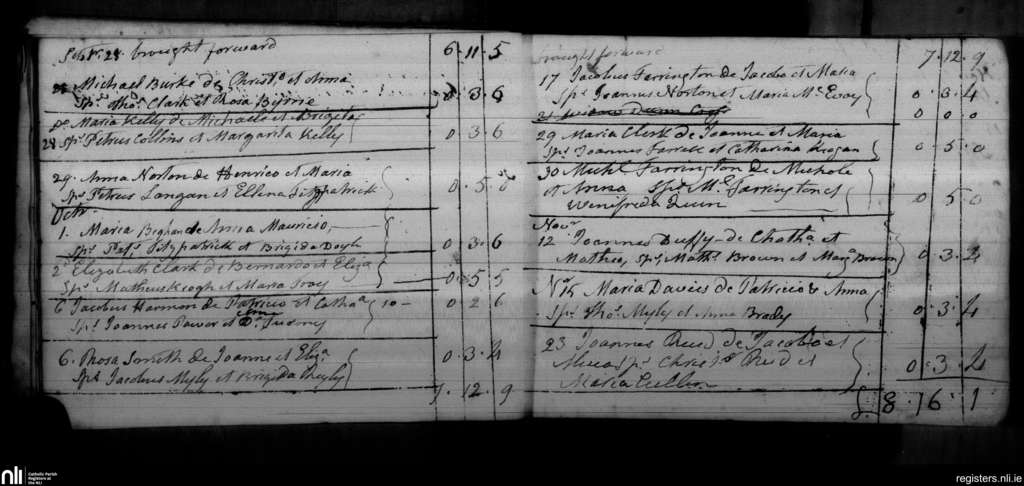 Septr. 28 brought forward 6. 11. 5
Michael Burke de Christo. et Anna
Sps. Thos. Clark et Rosa Byrne 0. 3. 6
Do. Maria Kelly de Michaele et Brigida
28 Sps. Petrus Collins et Margarita Kelly 0 3. 6
29. Anna Norton de Henrico et Maria
Sps. Petrus Langan et Ellena Fitzpatrick 0. 5. 0
Octr.
1. Maria Beghan de Anna Mauricio,
Sps. Pat. Fitzpatrick et Brigida Doyle 0. 3. 6
2 Elizabeth Clark de Bernardo et Eliza
Sps. Matheus Keogh et Maria Troy 0. 5 5
6 Jacobus Harmon de Patricio et Catha. 10 - 0. 2. 6
Sps. Joannes Power et
6. Rosa Smith de Joanne et Eliza.
Sps. Jacobus Myly et Brigida Doyle 0. 3. 4
7. 12. 9
brought forward 7. 12. 9
17 Jacobus Farrington de Jacobo et Maria
Sps. Joannes Norton et Maria McEvoy 0. 3. 4
0. 0. 0
29 Maria Clerk de Joanne et Maria
Sps. Joannes Farrell et Catharina Keegan 0. 5. 0
30 Michl. Farrington de Michele
et Anna Sps. Ml. Farrington et
Winifreda Quin 0 5 0
Novr.
12 Joannes Duffy de Catha. et
Matheo, Sps. Mathw. Brown et Mary Brown 0. 3. 4
Nr. 15 Maria Davies de Patricio & Anna
Sps. Thos. Myly et Anna Brady 0. 3. 4
23 Joannes Reed de Jacobo et
Sps. Christo. Reed et
Maria Cullen 0. 3. 4
£. 8. 16. 1
nli
Catholic Parish
Registers at
the NLI
registers.nli.ie